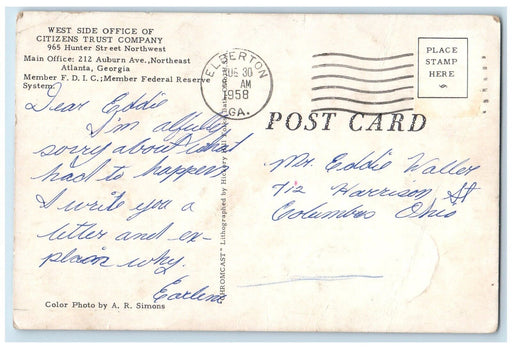 WEST SIDE OFFICE OF
CITIZENS TRUST COMPANY
965 Hunter Street Northwest
Main Office: 212 Auburn Ave.,Northeast
Atlanta, Georgia
Member F. D. I. C.;Member Federal Reserve
System.
Dear Eddie
I'm alfully
sorry about what
had to happen
I write you a
letter and ex-
plain why.
Earline
Color Photo by A. R. Simons
ELBERTON
AUG 30
AM
1958
GA.
PLACE
STAMP
HERE
POST CARD
Mr. Eddie Waller
712 Harrison St
Columbus Ohio
Lithographed by